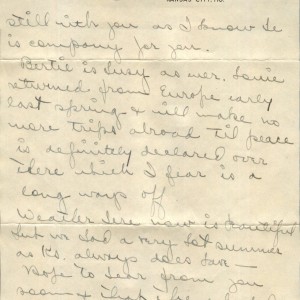 KANSAS CITY, MO.
still with you as I know he
is company for you.
Bertie is busy as ever. Louie
returned from Europe early
last spring & will make no
more trips abroad til peace
is definitely declared over
there which I fear is a
long ways off
Weather here now is beautiful
but we had a very hot summer
as Ks. always does have —
Hope to hear from you
soon & that